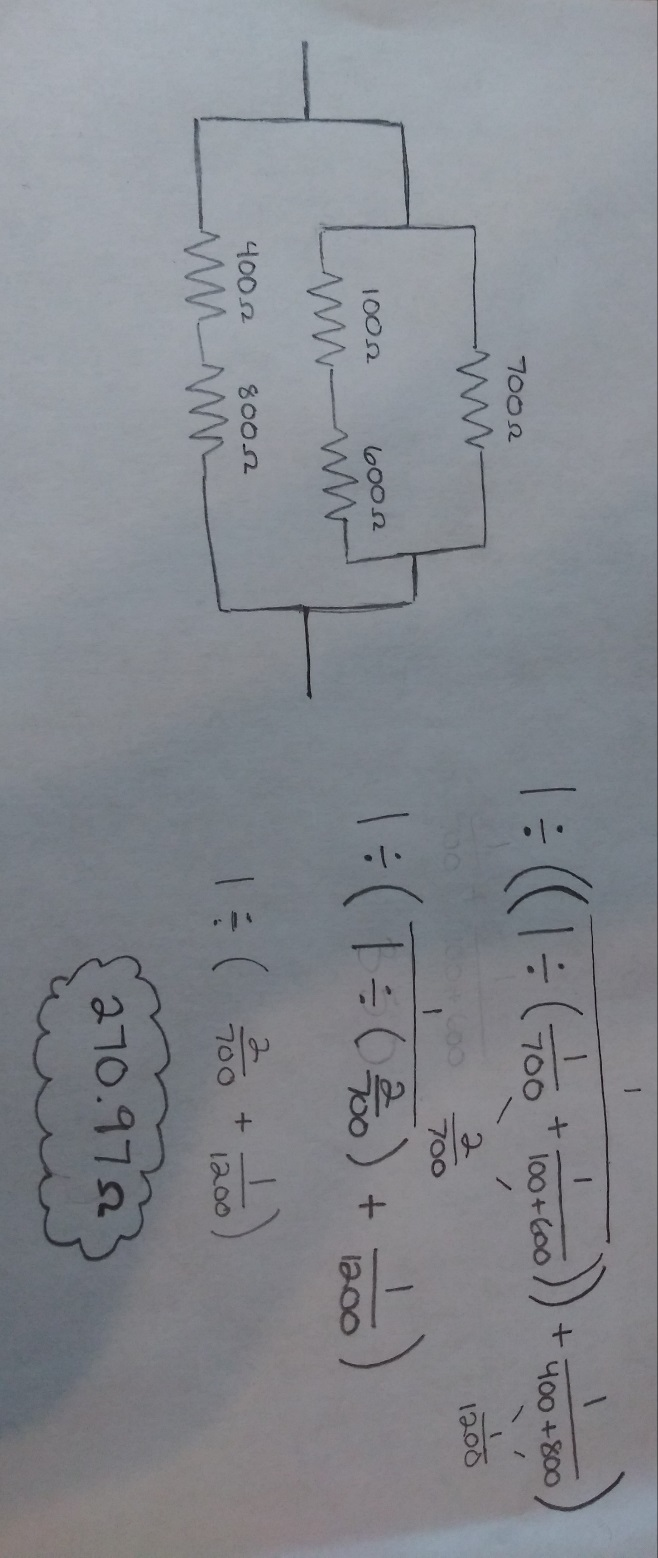 700Ω
100Ω 600Ω
400Ω 800Ω
1
1 ÷ ((1 ÷ (1/700 + 1/100+600)) + 1/400+800)
2/700
1/1200
1
1 ÷ (1 ÷ (2/700) + 1/1200)
1 ÷ (2/700 + 1/1200)
270.97Ω